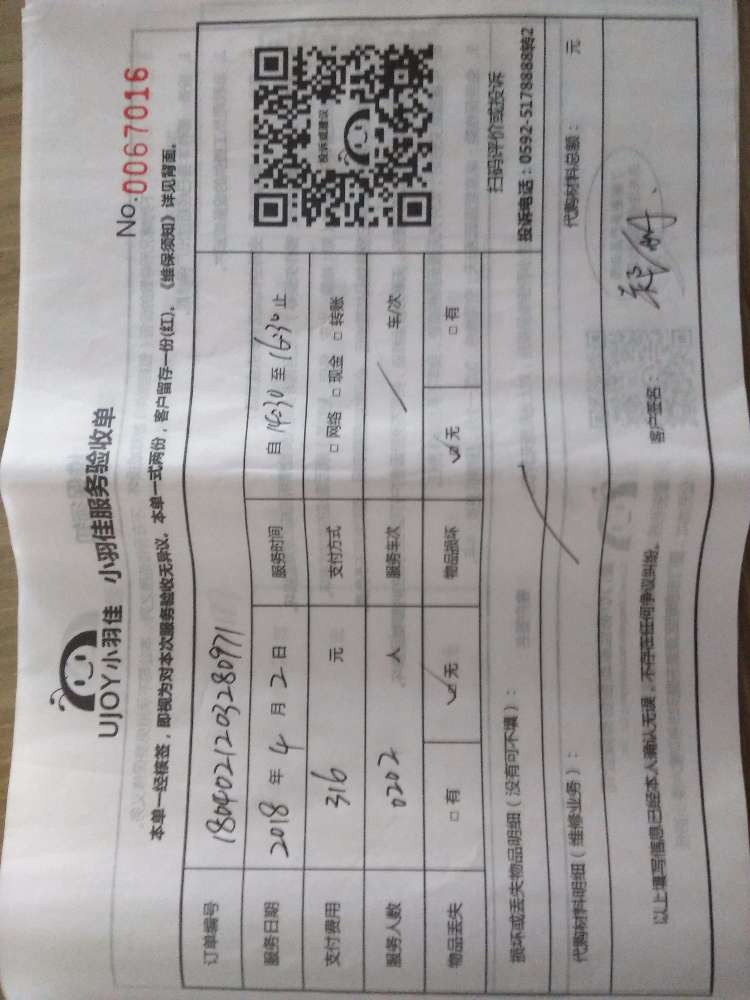 No.0067016
UJOY小羽佳 小羽佳服务验收单
本单一经核签，即视为对本次服务验收无异议。本单一式两份，客户留存一份(红)。《维保须知》详见背面。
订单编号 1804021203280971
服务日期 2018 年 4 月 2 日 服务时间 自 14:30 至 16:30 止
支付费用 316 元 支付方式 □ 网络 □ 现金 □ 转账
服务人数 0202 人 服务车次 / 车/次
物品丢失 □ 有 ☑ 无 物品损坏 ☑ 无 □ 有
投诉或建议
扫码评价或投诉
投诉电话：0592-5178888转2
损坏或丢失物品明细（没有可不填）：
代购材料明细（维修业务）： 代购材料总额： 元
以上填写信息已经本人确认无误，不存在任何争议纠纷。 客户签名：